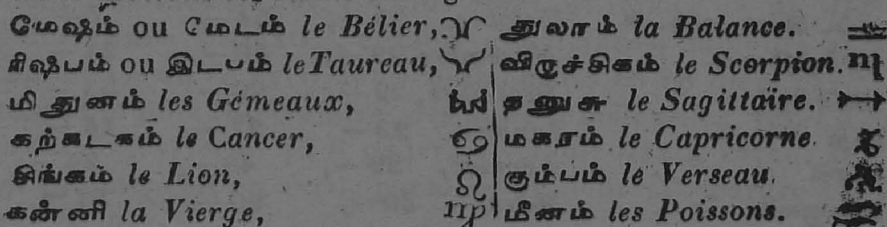 மேஷம் ou மேடம் le Bélier, ♈
ரிஷபம் ou இடபம் le Taureau, ♉
மிதுனம் les Gémeaux, ♊
கற்கடகம் le Cancer, ♋
சிங்கம் le Lion, ♌
கன்னி la Vierge, ♍
துலாம் la Balance. ♎
விருச்சிகம் le Scorpion. ♏
தனுசு le Sagittaire. ♐
மகரம் le Capricorne. ♑
கும்பம் le Verseau. ♒
மீனம் les Poissons. ♓